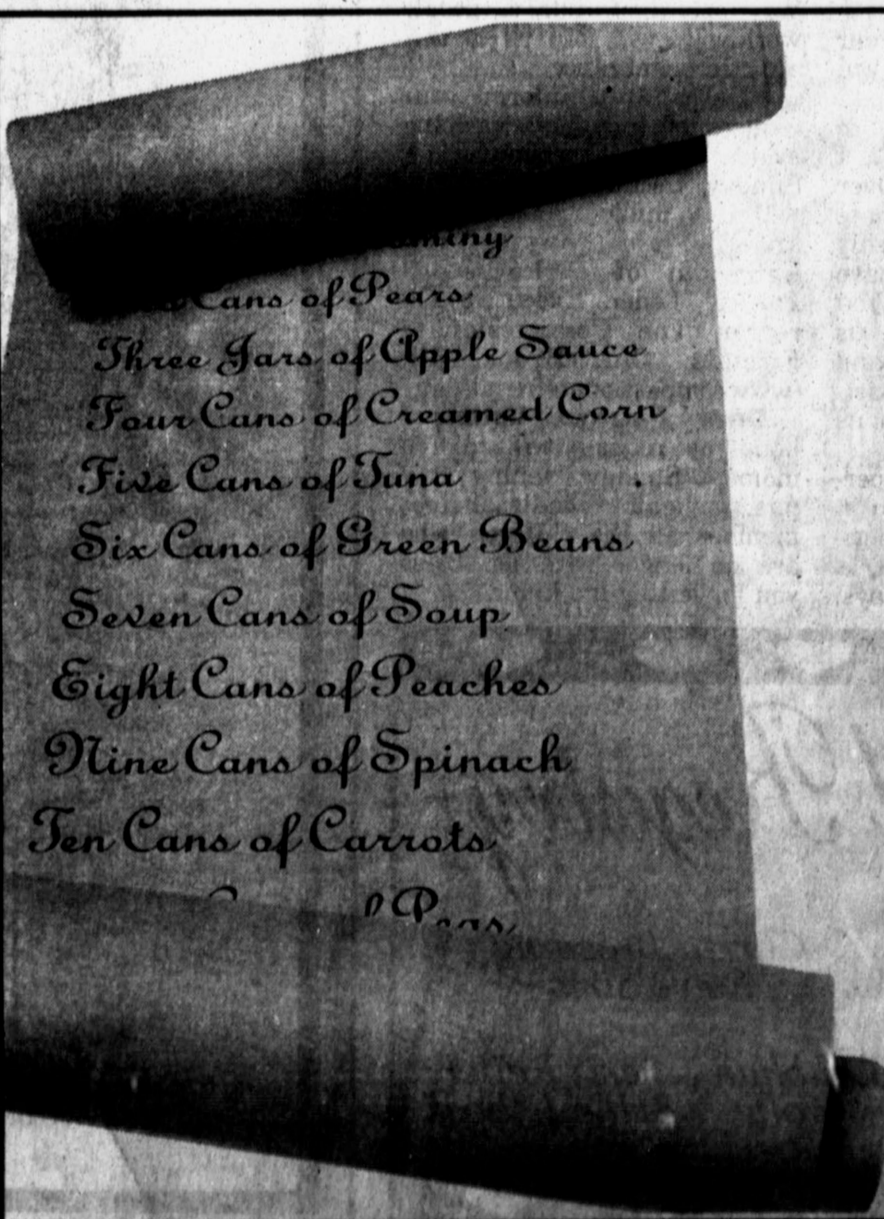 Cans of Pears
Three Jars of Apple Sauce
Four Cans of Creamed Corn
Five Cans of Tuna
Six Cans of Green Beans
Seven Cans of Soup
Eight Cans of Peaches
Nine Cans of Spinach
Ten Cans of Carrots